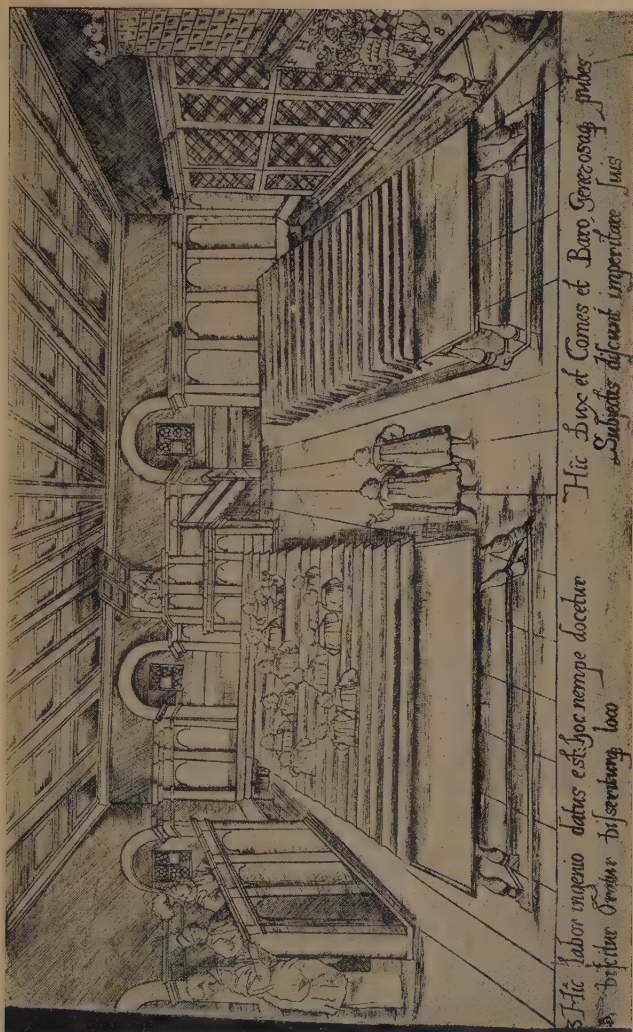 Hic labor ingenio datus est. hoc nempe docetur
Discitur disseritur loco
Hic Dux et Comes et Baro, Generosaq, pubes
Subjectis discunt imperitare suis